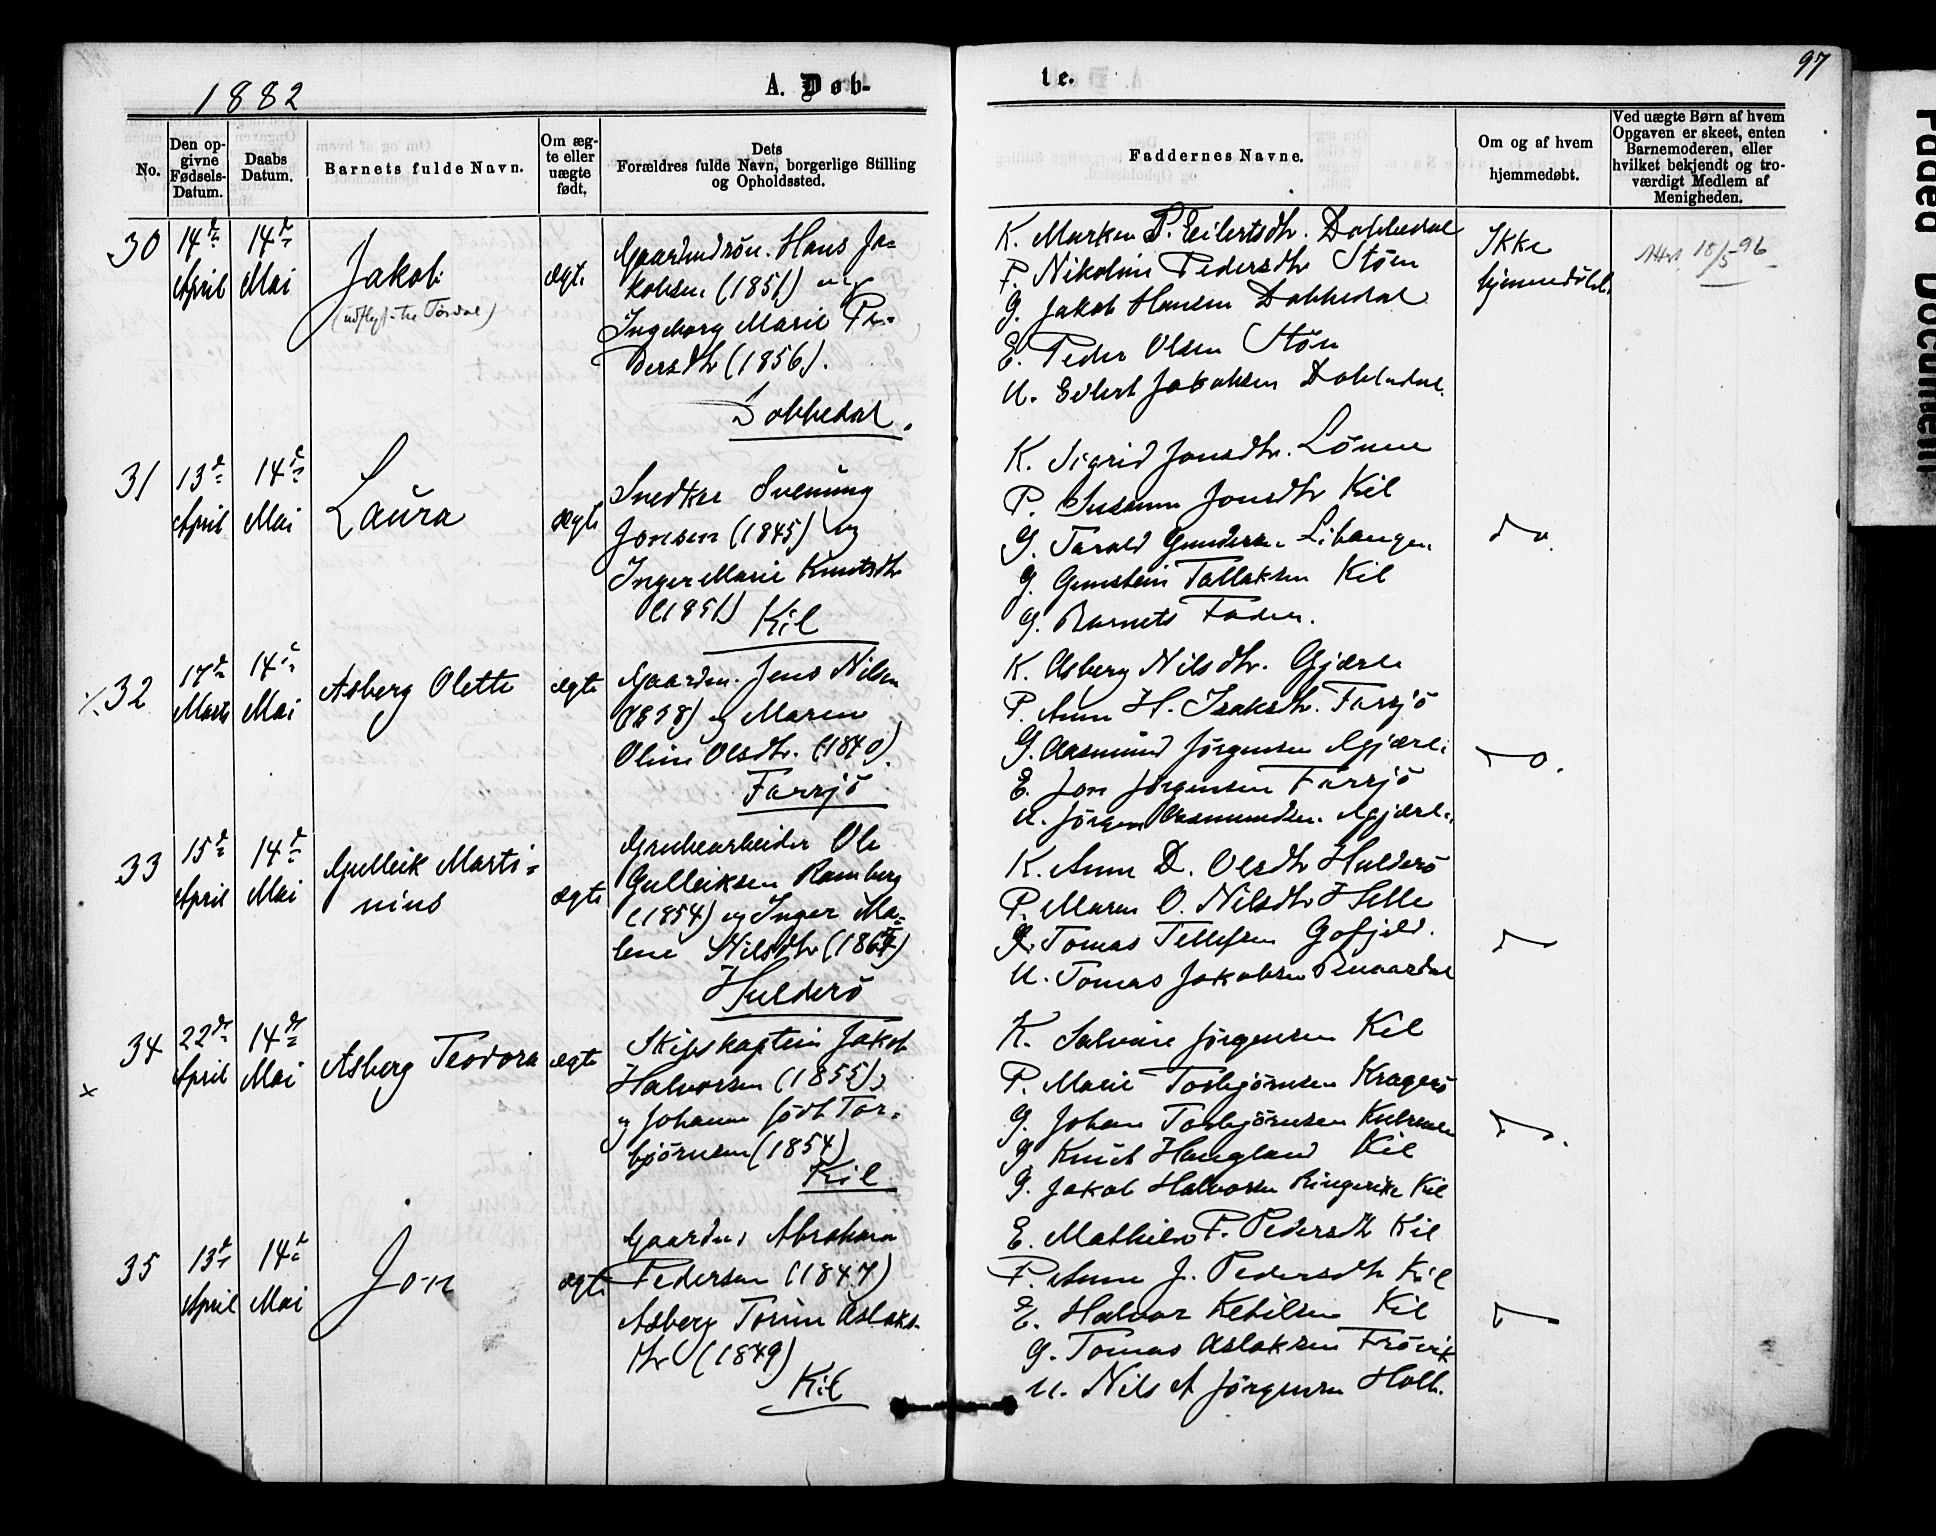 97
1882
A. Døb-
te.
No.
Den op-
givne
Fødsels-
Datum.
Daabs
Datum.
Barnets fulde Navn.
Om æg-
te eller
uægte
født.
Dets
Forældres fulde Navn, borgerlige Stilling
og Opholdssted.
Faddernes Navne.
Om og af hvem
hjemmedøbt.
Ved uægte Børn af hvem
Opgaven er skeet, enten
Barnemoderen, eller
hvilket bekjendt og tro-
værdigt Medlem af
Menigheden.
30
14de
April
14de
Mai
Jakob
(udflyt. til Tørdal)
ægte
Hans Ja-
kobsen (1851) og
Ingeborg Marie Pe-
dersdtr (1856).
Dobbedal.
K. Maren P. Eilertsdtr. Dobbedal
P. Nikoline Pedersdtr Støen
G. Jakob Hansen Dobbedal
E. Peder Olsen Støen
U. Eilert Jakobsen Dobbedal
Ikke
hjemmedøbt.
Att. 18/5 96
31
13de
April
14de
Mai
Laura
ægte
Snedker Svenung
Jonsen (1845) og
Inger Marie Knutsdtr
(1851)
Kil
K. Sigrid Jonsdtr. Lønne
P. Susanne Jonsdtr Kil
G. Tarald Gundersen
G. Gunstein Tallaksen Kil
G. Barnets Fader.
do.
32
17de
Marts
14de
Mai
Asberg Olette
ægte
Gaardm. Jens Nilsen
og Maren
Oline Olsdtr. (1840).
Farsjø
K. Asberg Nilsdtr. Gjærle
P. Anne H. Isaksdtr. Farsjø
G. Aasmund Jørgensen
E. Jon Jørgensen Farsjø
U. Jørgen Aasmundsen
do.
33
15de
April
14de
Mai
Gulleik Marti-
nius
ægte
Grubearbeider Ole
Gulleiksen Ramberg
(1854) og Inger Ma-
lene Nilsdtr
Hulderø
K. Anne D. Olsdtr Hulderø
P. Maren O. Nilsdtr Helle
G. Tomas Tellefsen Gofjeld.
U. Tomas Jakobsen
do
34
22de
April
14de
Mai
Asberg Teodora
ægte
Skipskaptein Jakob
Halvorsen (1855)
og Johanne født Tor-
bjørnsen (1854)
Kil
K. Salvine Jørgensen Kil
P. Marie Torbjørnsen Kragerø
G. Johan Torbjørnsen
G. Knut Haugland Kil
G. Jakob Halvorsen Ringerike Kil
do.
35
13de
April
14de
Mai
Jon
ægte
Gaardm. Abraham
Pedersen (1847)
Asberg Torine Aslaks-
dtr (1849)
Kil
E. Mathilde P. Pedersdtr Kil
P. Anne J. Pedersdtr Kil
E. Halvor Ketilsen Kil
G. Tomas Aslaksen Frøvik
U. Nils A Jørgensen Holt.
do
Faded Document